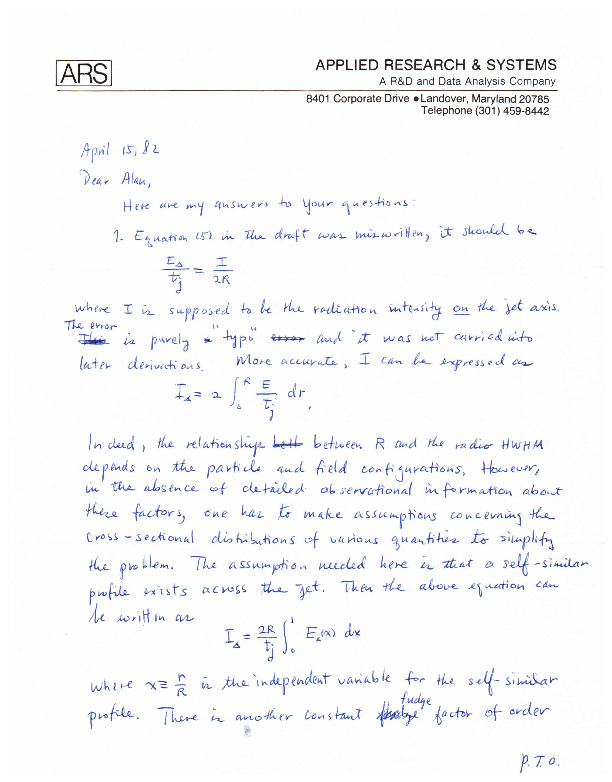 ARS
APPLIED RESEARCH & SYSTEMS
A R&D and Data Analysis Company
8401 Corporate Drive • Landover, Maryland 20785
Telephone (301) 459-8442
April 15, 82
Dear Alan,
Here are my answers to your questions:
1. Equation (5) in the draft was miswritten, it should be
E_Δ / t_j = I / 2R
where I is supposed to be the radiation intensity on the jet axis.
The error
is purely "typo" and it was not carried into
later derivations. More accurate, I can be expressed as
I_Δ = 2 ∫_0^R E / t_j dr.
Indeed, the relationships between R and the radio HWHM
depends on the particle and field configurations, However,
in the absence of detailed observational information about
these factors, one has to make assumptions concerning the
cross-sectional distributions of various quantities to simplify
the problem. The assumption needed here is that a self-similar
profile exists across the jet. Then the above equation can
be written as
I_Δ = 2R / t_j ∫_0^1 E_Δ(x) dx
where x ≡ r/R is the independent variable for the self-similar
profile. There is another constant fudge factor of order
P.T.O.